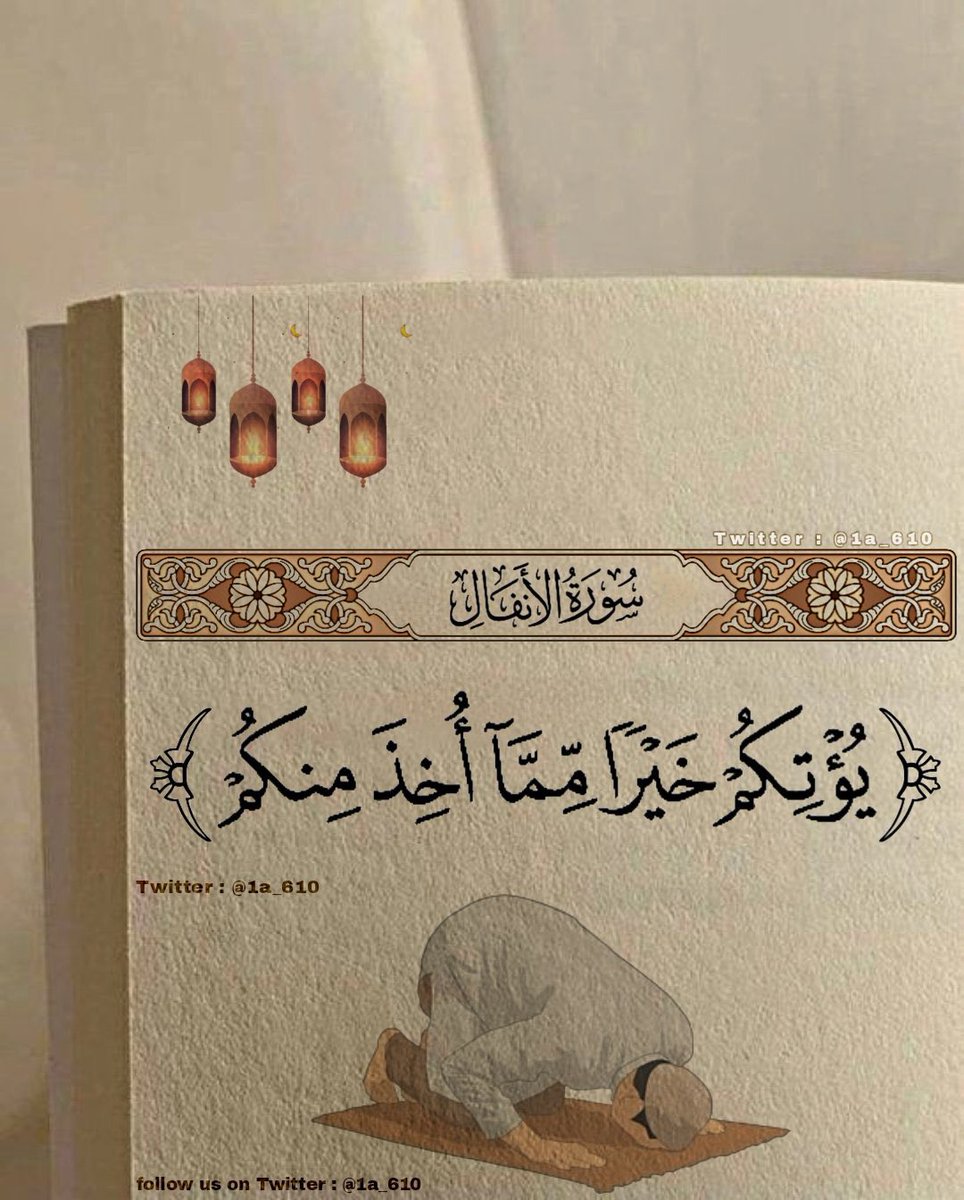 Twitter : @1a_610
سُورَةُ الأَنفَالِ
﴿يُؤْتِكُمْ خَيْرًا مِّمَّآ أُخِذَ مِنكُمْ﴾
Twitter : @1a_610
follow us on Twitter : @1a_610